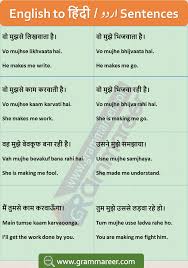 English to हिंदी / اردو Sentences
वो मुझसे लिखवाता है।
Vo mujhse likhvaata hai.
He makes me write.
वो मुझे भिजवाता है।
Vo mujhe bhijvaata hai.
He makes me go.
वो मुझसे काम करवाती है।
Vo mujhse kaam karvati hai.
She makes me work.
वो मुझे भिजवा रही है।
Vo mujhe bhijva rahi hai.
She is making me go.
वह मुझे बेवकूफ बना रही है।
Vah mujhe bevakuf bana rahi hai.
She is making me fool.
उसने मुझे समझाया।
Usne mujhe samjhaya.
She made me understand.
मैं तुमसे काम करवाऊँगा।
Main tumse kaam karvaoonga.
I'll get the work done by you.
तुम मुझे उससे लड़वा रहे हो।
Tum mujhe usse ladva rahe ho.
You are making me fight him.
www.grammareer.com